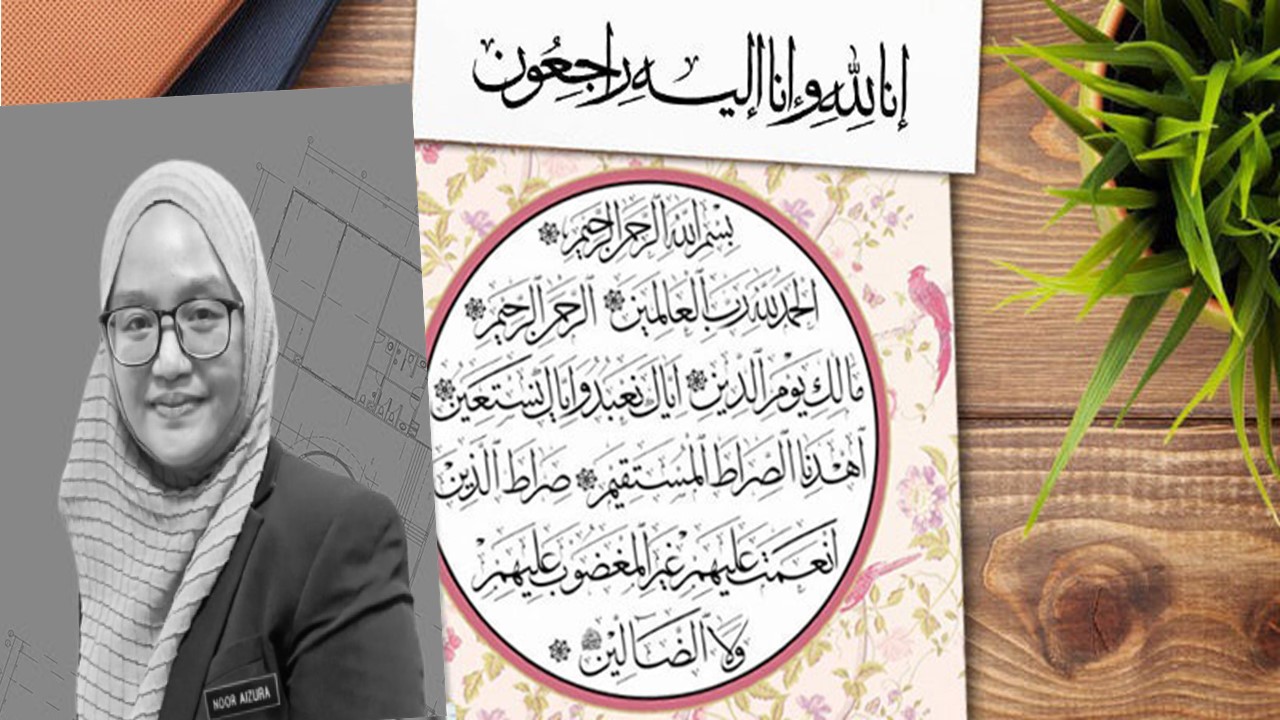 إنا لله وإنا إليه راجعون
بسم الله الرحمن الرحيم
الحمد لله رب العالمين الرحمن الرحيم
مالك يوم الدين اياك نعبد واياك نستعين
اهدنا الصراط المستقيم صراط الذين
انعمت عليهم غير المغضوب عليهم
ولا الضالين
NOOR AIZURA